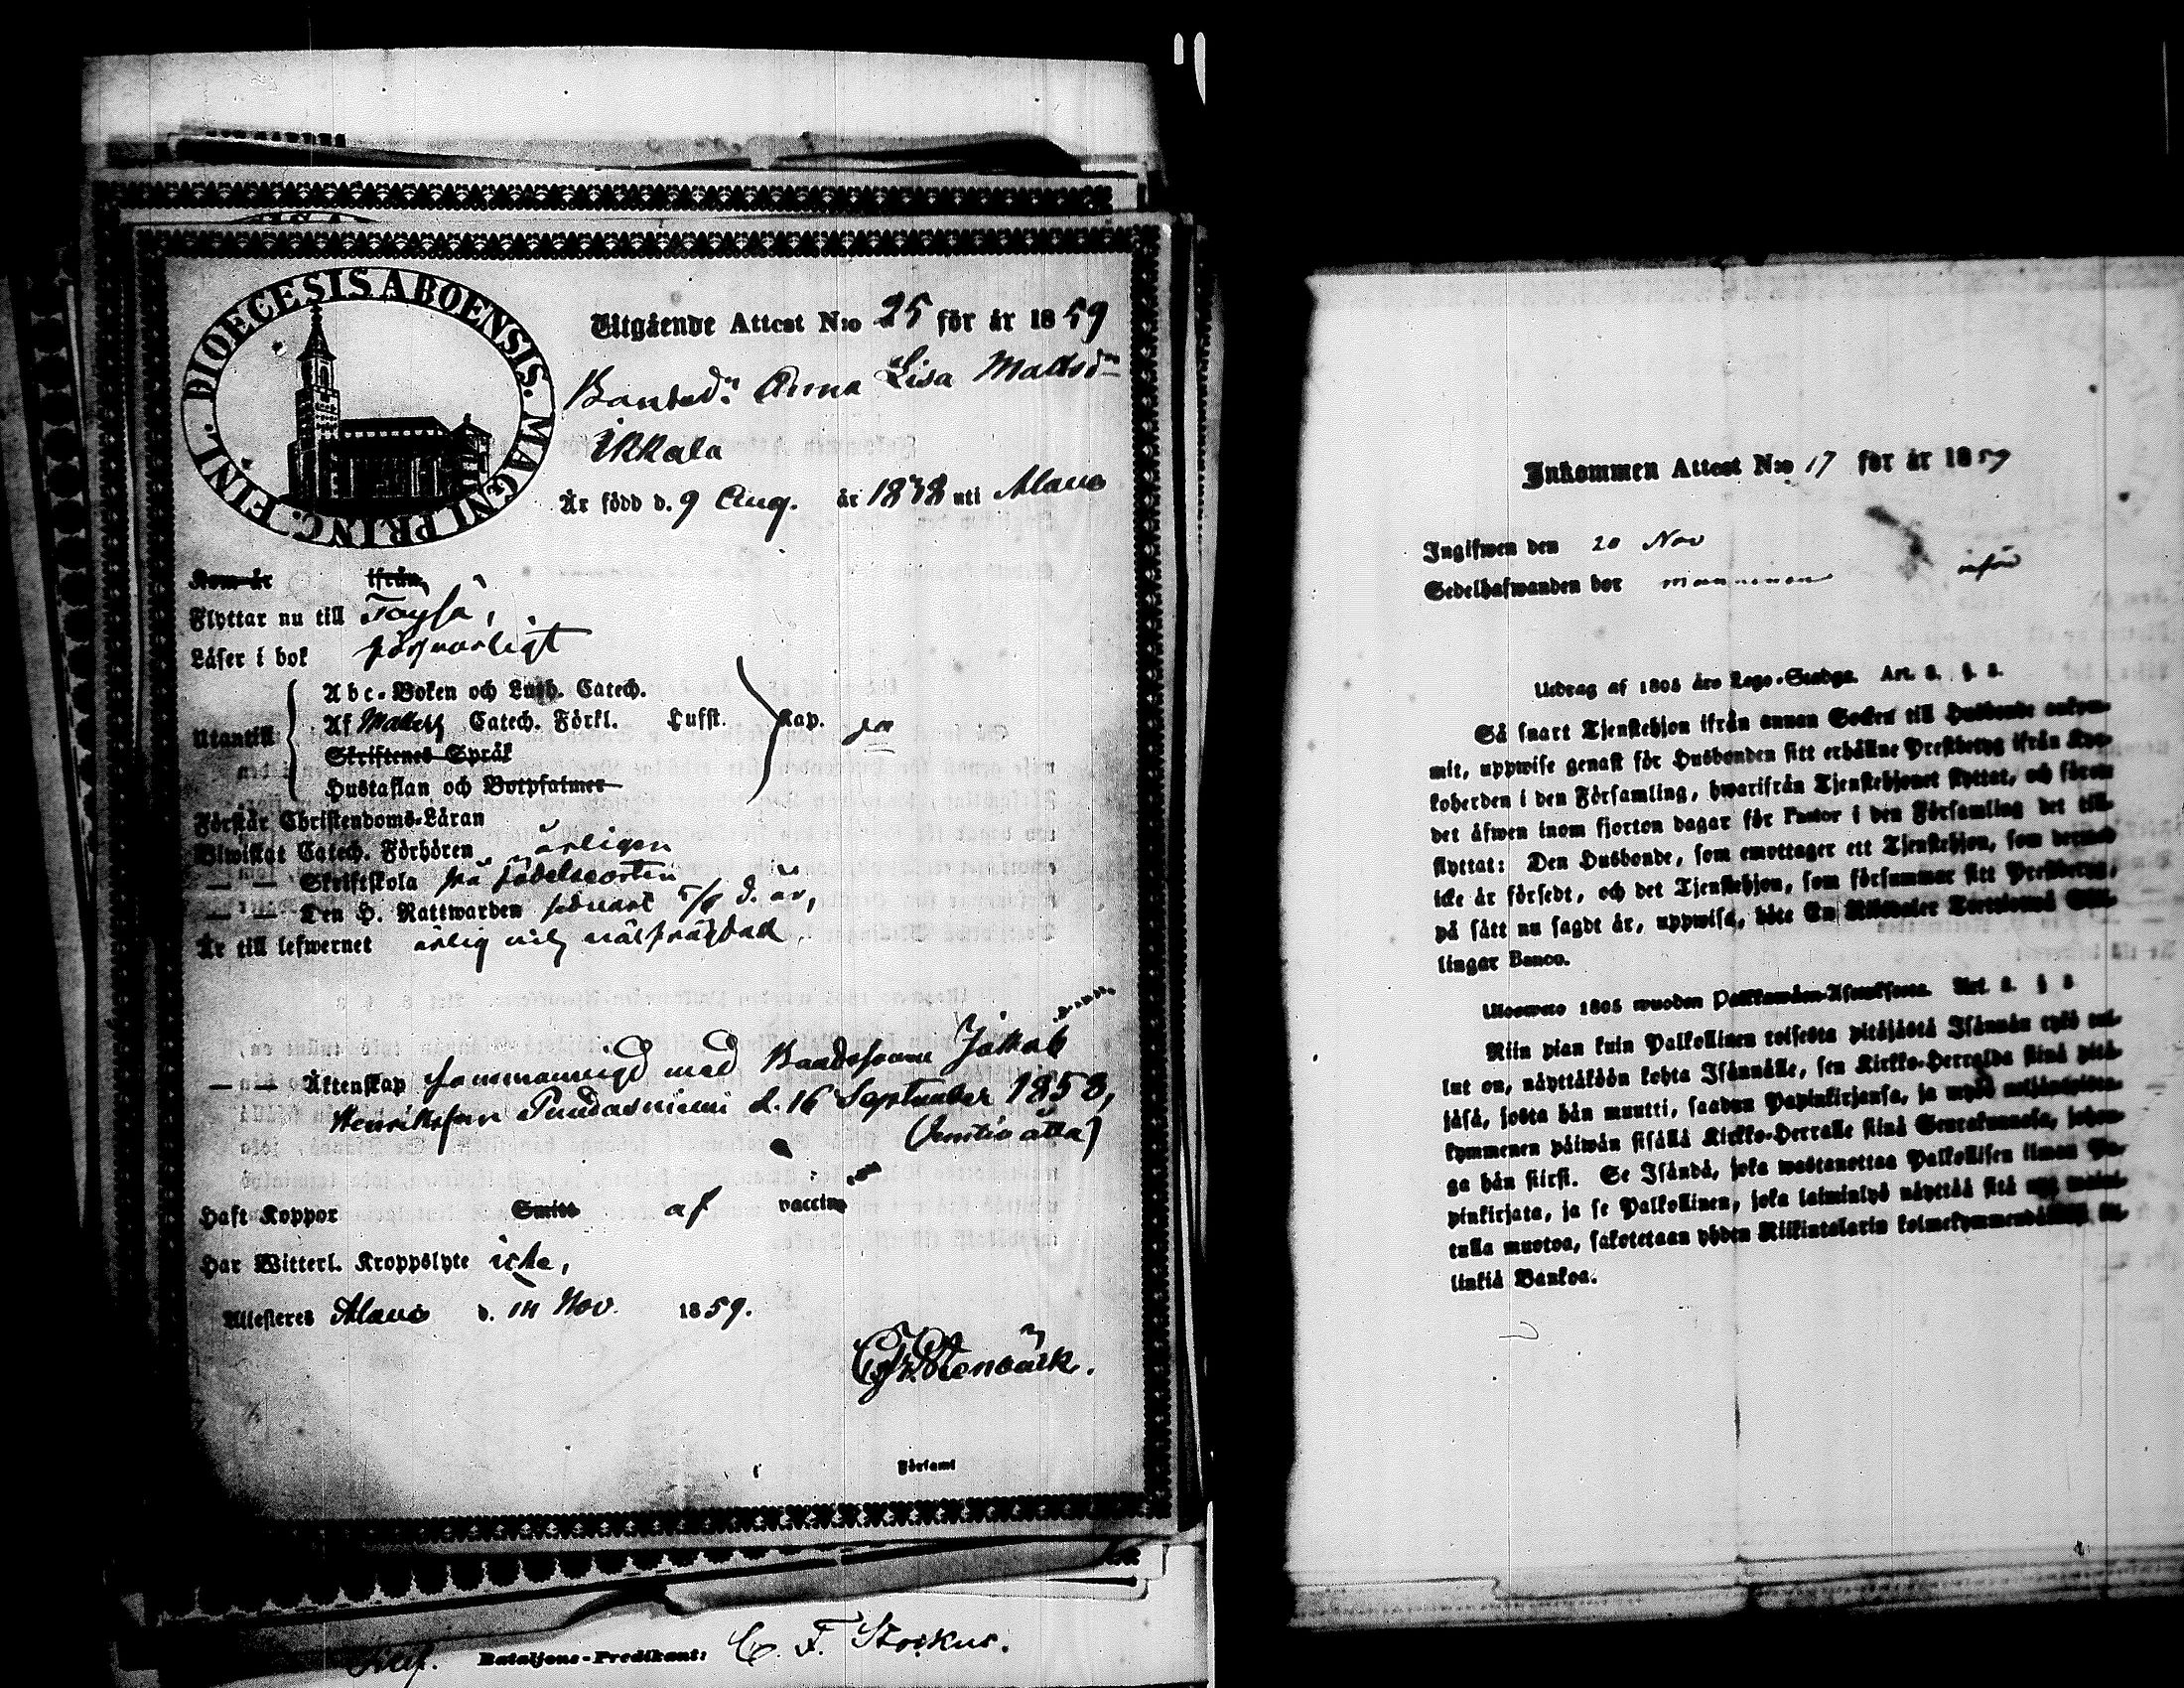 DIOECESIS ABOENSIS. MAGNI PRINC. FINL.
Utgående Attest N:o 25 för år 1859
Anna Lisa Mattsdr
Ikkala
Är född d. 9 Aug. år 1838 uti Alavo
Kom år ifrån
Flyttar nu till Töysä,
Läser i bok försvarligt
Utantill
Abc-Boken och Luth. Catech.
Af Catech. Förkl. Hufst. Kap. ja
Skriftenes Språk
Hustaflan och Botpsalmer
Förstår Christendoms-Läran
Biwistat Catech. Förhören årligen
— — Skriftskola på födelseorten
— — Den H. Nattwarden senast 5/6 d. år,
Är till lefwernet ärlig och välfrägdad.
— — Äktenskap sammanvigd med Bondesonen Jakob
Henriksson d. 16 September 1858,
(femtio åtta)
Haft Koppor Smitt af vaccin
Har Witterl. Kroppslyte icke,
Attesteres Alavo d. 14 Nov. 1859.
Stenbäck.
Församl
Bataljons-Predikant: C. F. Storkus.
Inkommen Attest N:o 17 för år 1859
Ingifwen den 20 Nov
Sedelhafwanden bor
Utdrag af 1805 års Lego-Stadga. Art. 2. §. 3.
Så snart Tjenstehjon ifrån annan Socken till Husbonde ankom-
mit, uppwise genast för Husbonden sitt erhållne Prestbetyg ifrån Kyr-
koherden i den Församling, hwarifrån Tjenstehjonet flyttat, och förete
det äfwen inom fjorton dagar för Pastor i den Församling det till-
flyttat: Den Husbonde, som emottager ett Tjenstehjon, som dermed
icke är försedt, och det Tjenstehjon, som försummar sitt Prestbetyg,
på sätt nu sagdt är, uppwisa, böte En Riksdaler Tretiotwå Skil-
lingar Banco.
Ulosweto 1805 wuoden Palkkawäen-Asetuksesta. Art. 2. § 3
Niin pian kuin Palkollinen toisesta pitäjästä Isännän tykö tul-
lut on, näyttäköön kohta Isännälle, sen Kirkko-Herralda siinä pitä-
jäsä, josta hän muutti, saadun Papinkirjansa, ja myös neljäntoista-
kymmenen päiwän sisällä Kirkko-Herralle siinä Seurakunnasa, johon-
ga hän siirsi. Se Isändä, joka wastanottaa Palkollisen ilman Pa-
pinkirjata, ja se Palkollinen, joka laiminlyö näyttää sitä nyt mainit-
tulla muotoa, sakotetaan yhden Riikintalarin kolmekymmendäkaksi kil-
linkiä Bankoa.